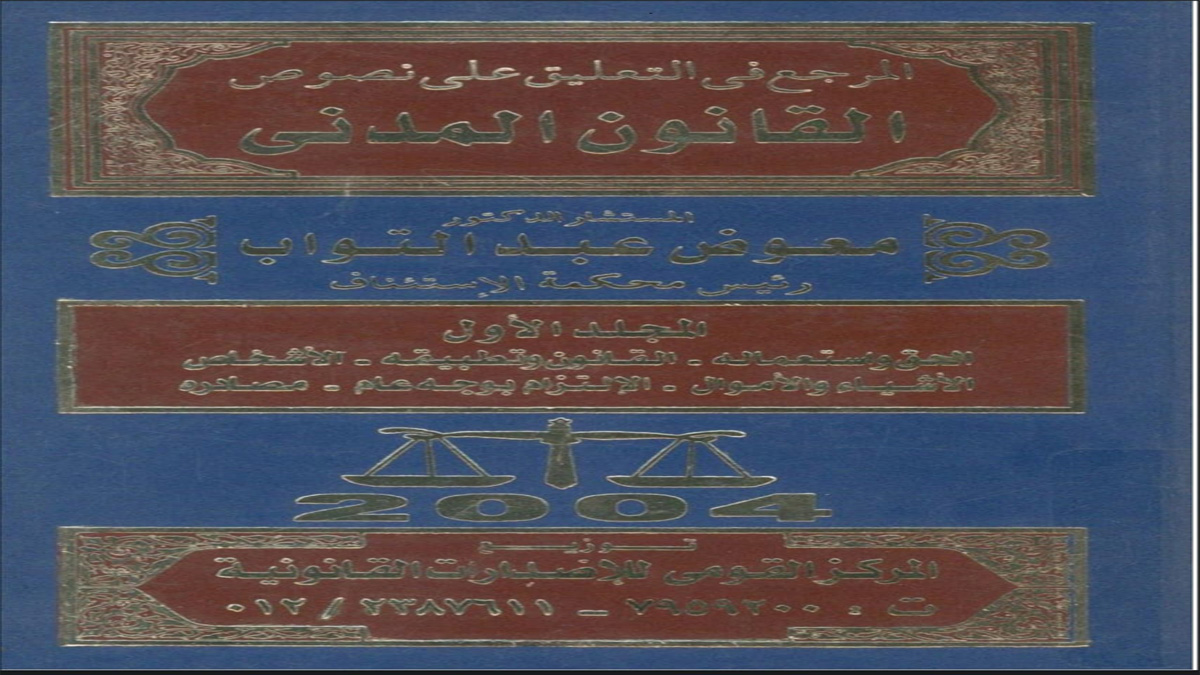 المرجع فى التعليق على نصوص
القانون المدنى
المستشار الدكتور
معوض عبد التواب
رئيس محكمة الإستئناف
المجلد الأول
الحق وإستعماله - القانون وتطبيقه - الأشخاص
الأشياء والأموال - الإلتزام بوجه عام - مصادره
2004
توزيع
المركز القومى للإصدارات القانونية
ت : ٧٩٥٩٢٠٠ - ٠١٢/٢٣٨٧٦١١